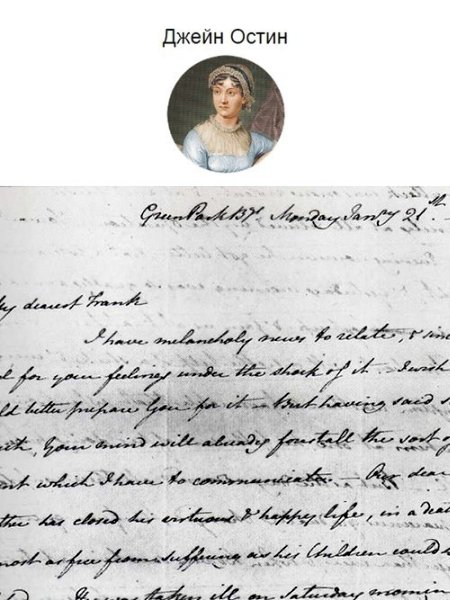 Джейн Остин
Green Park Bgs Monday Janry 21st.
My dearest Frank
I have melancholy news to relate, & sin
l for your feelings under the shock of it. I wish
ld better prepare You for it. But having said s
ch, Your mind will already forestall the sort of
ent which I have to communicate. Our dear
ther has closed his virtuous & happy life, in a deat
most as free from suffering as his Children could
was taken ill on Saturday mornin